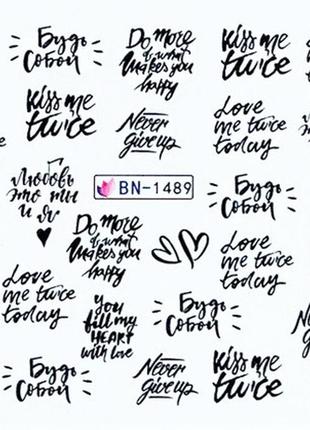 Будь
Собой
Do more
of what
makes you
happy
Kiss me
twice
Kiss me
twice
Never
give up
Love
me twice
today
Любовь
это ты
и я
BN-1489
Будь
Собой
Do more
of what
makes you
happy
Love
me twice
today
Love
me twice
today
You
fill my
HEART
with love
Будь
Собой
Будь
Собой
Never
give up
Kiss me
twice